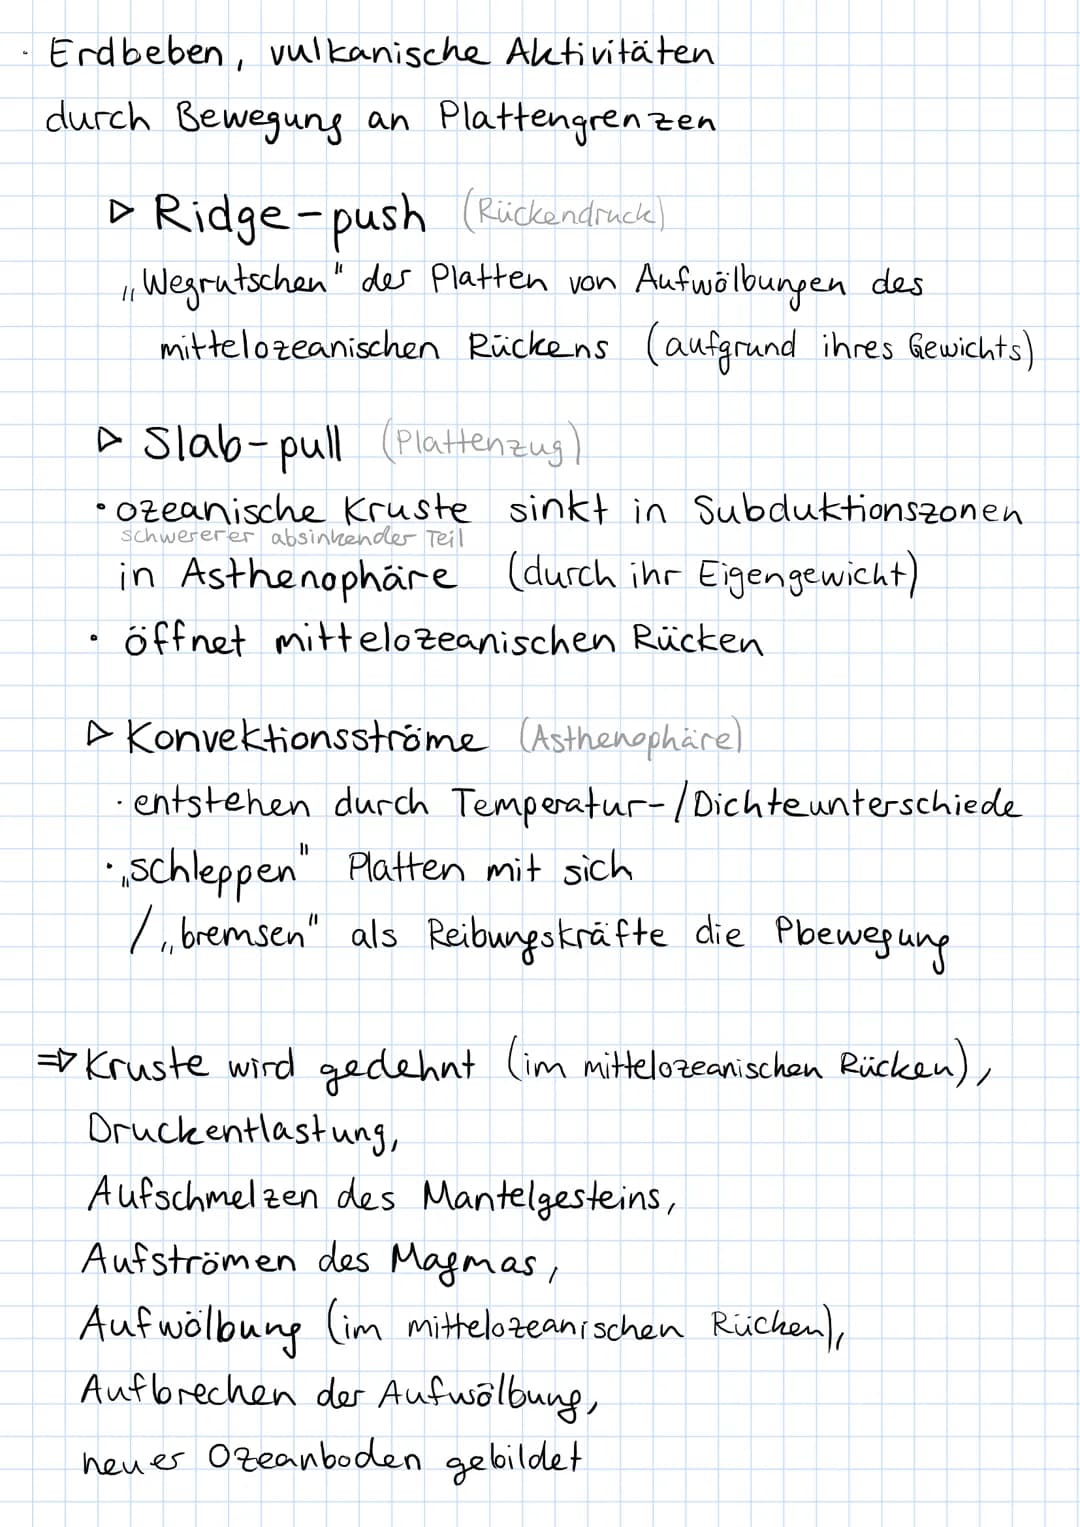 · Erdbeben, vulkanische Aktivitäten
durch Bewegung an Plattengrenzen
▷ Ridge-push (Rückendruck)
„Wegrutschen" der Platten von Aufwölbungen des
mittelozeanischen Rückens (aufgrund ihres Gewichts)
▷ Slab-pull (Plattenzug)
· ozeanische Kruste sinkt in Subduktionszonen
schwererer absinkender Teil
in Asthenophäre (durch ihr Eigengewicht)
· öffnet mittelozeanischen Rücken
▷ Konvektionsströme (Asthenophäre)
· entstehen durch Temperatur-/Dichteunterschiede
· „schleppen" Platten mit sich
/ „bremsen" als Reibungskräfte die Pbewegung
⇒ Kruste wird gedehnt (im mittelozeanischen Rücken),
Druckentlastung,
Aufschmelzen des Mantelgesteins,
Aufströmen des Magmas,
Aufwölbung (im mittelozeanischen Rücken),
Aufbrechen der Aufwölbung,
neuer Ozeanboden gebildet